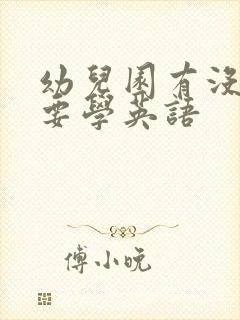 幼兒園有沒
要學英語
傅小晚